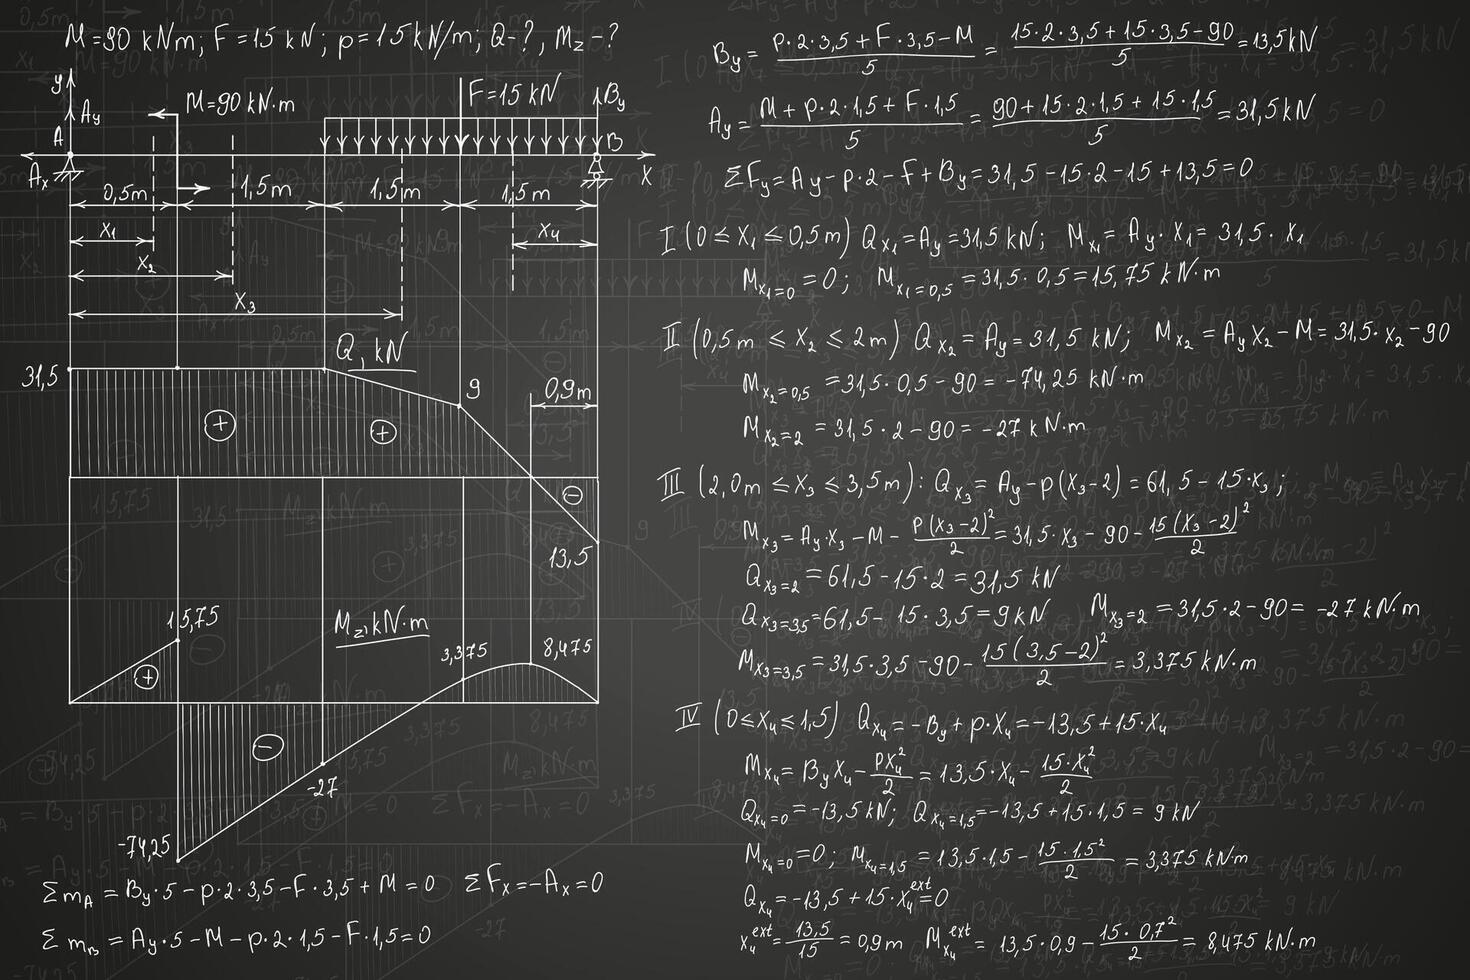 M=90 kNm; F=15 kN; p=15kN/m; Q-?, Mz-?
y
Ay
M=90 kN·m
F=15 kN
By
A
B
Ax
X
0,5m
1,5m
1,5m
1,5m
x₁
x₂
x₃
x₄
Q, kN
31,5
9
0,9m
+
+
−
13,5
15,75
Mz, kN·m
3,375
8,475
+
−
-27
-74,25
Σm_A = By·5-p·2·3,5-F·3,5+M=0 ΣFx=-Ax=0
Σm_B = Ay·5-M-p·2·1,5-F·1,5=0
By = (p·2·3,5+F·3,5-M)/5 = (15·2·3,5+15·3,5-90)/5 = 13,5kN
Ay = (M+p·2·1,5+F·1,5)/5 = (90+15·2·1,5+15·1,5)/5 = 31,5kN
ΣFy=Ay-p·2-F+By=31,5-15·2-15+13,5=0
I (0≤x₁≤0,5m) Qx₁=Ay=31,5kN; Mx₁=Ay·x₁=31,5·x₁
Mx₁=0 =0; Mx₁=0,5 =31,5·0,5=15,75 kN·m
II (0,5m ≤ x₂ ≤ 2m) Qx₂=Ay=31,5 kN; Mx₂=Ay x₂-M=31,5·x₂-90
Mx₂=0,5 =31,5·0,5-90=-74,25 kN·m
Mx₂=2 =31,5·2-90=-27 kN·m
III (2,0m ≤ x₃ ≤ 3,5m): Qx₃=Ay-p(x₃-2)=61,5-15·x₃;
Mx₃=Ay·x₃-M-p(x₃-2)²/2=31,5·x₃-90-15(x₃-2)²/2
Qx₃=2 =61,5-15·2=31,5 kN
Qx₃=3,5 =61,5-15·3,5=9kN Mx₃=2 =31,5·2-90=-27 kN·m
Mx₃=3,5 =31,5·3,5-90-15(3,5-2)²/2=3,375 kN·m
IV (0≤x₄≤1,5) Qx₄=-By+p·x₄=-13,5+15·x₄
Mx₄=By x₄-px₄²/2=13,5·x₄-15·x₄²/2
Qx₄=0 =-13,5kN; Qx₄=1,5 =-13,5+15·1,5=9 kN
Mx₄=0 =0; Mx₄=1,5 =13,5·1,5-15·1,5²/2=3,375 kNm
Qx₄=-13,5+15·x₄ᵉˣᵗ=0
x₄ᵉˣᵗ=13,5/15=0,9m Mx₄ᵉˣᵗ=13,5·0,9-15·0,7²/2=8,475 kN·m